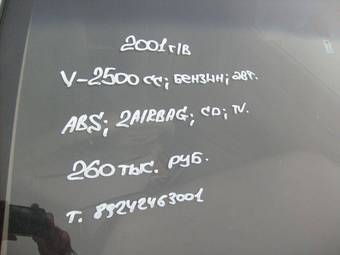 2001 г/в
V-2500 сс; бензин; авт.
ABS; 2AIRBAG; CD; TV.
260 тыс. руб.
т. 89242463001